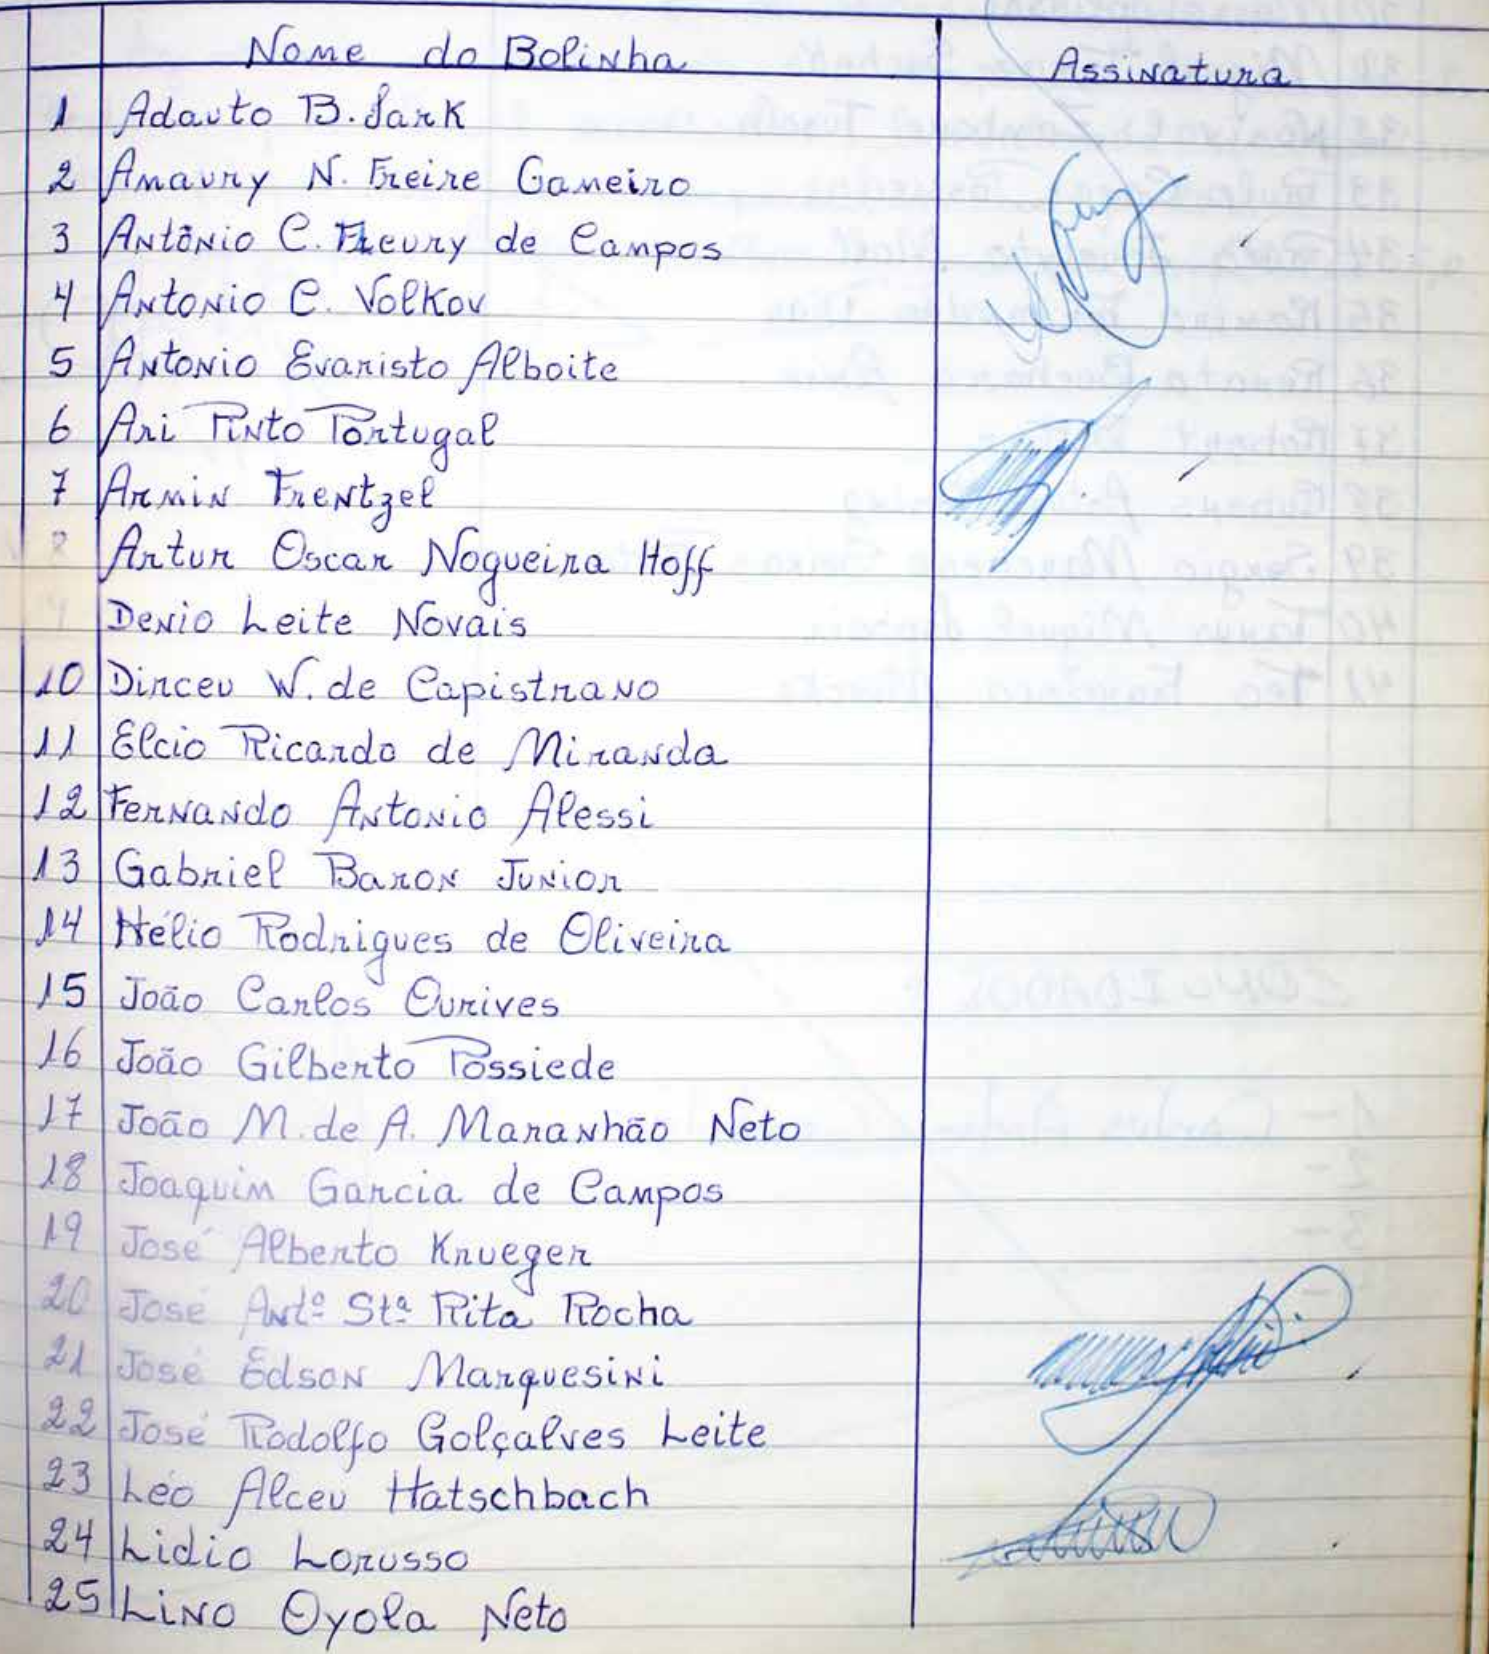 Nome do Bolinha Assinatura
1 Adauto B. Sark
2 Amaury N. Freire Gameiro
3 Antônio C. Fleury de Campos
4 Antonio C. Volkov
5 Antonio Evaristo Alboite
6 Ari Pinto Portugal
7 Armin Frentzel
8 Artur Oscar Nogueira Hoff
9 Denio Leite Novais
10 Dirceu W. de Capistrano
11 Elcio Ricardo de Miranda
12 Fernando Antonio Alessi
13 Gabriel Baron Junior
14 Hélio Rodrigues de Oliveira
15 João Carlos Ourives
16 João Gilberto Possiede
17 João M. de A. Maranhão Neto
18 Joaquim Garcia de Campos
19 José Alberto Krueger
20 José Antº Stª Rita Rocha
21 José Edson Marquesini
22 José Rodolfo Golçalves Leite
23 Léo Alceu Hatschbach
24 Lidio Lorusso
25 Lino Oyola Neto